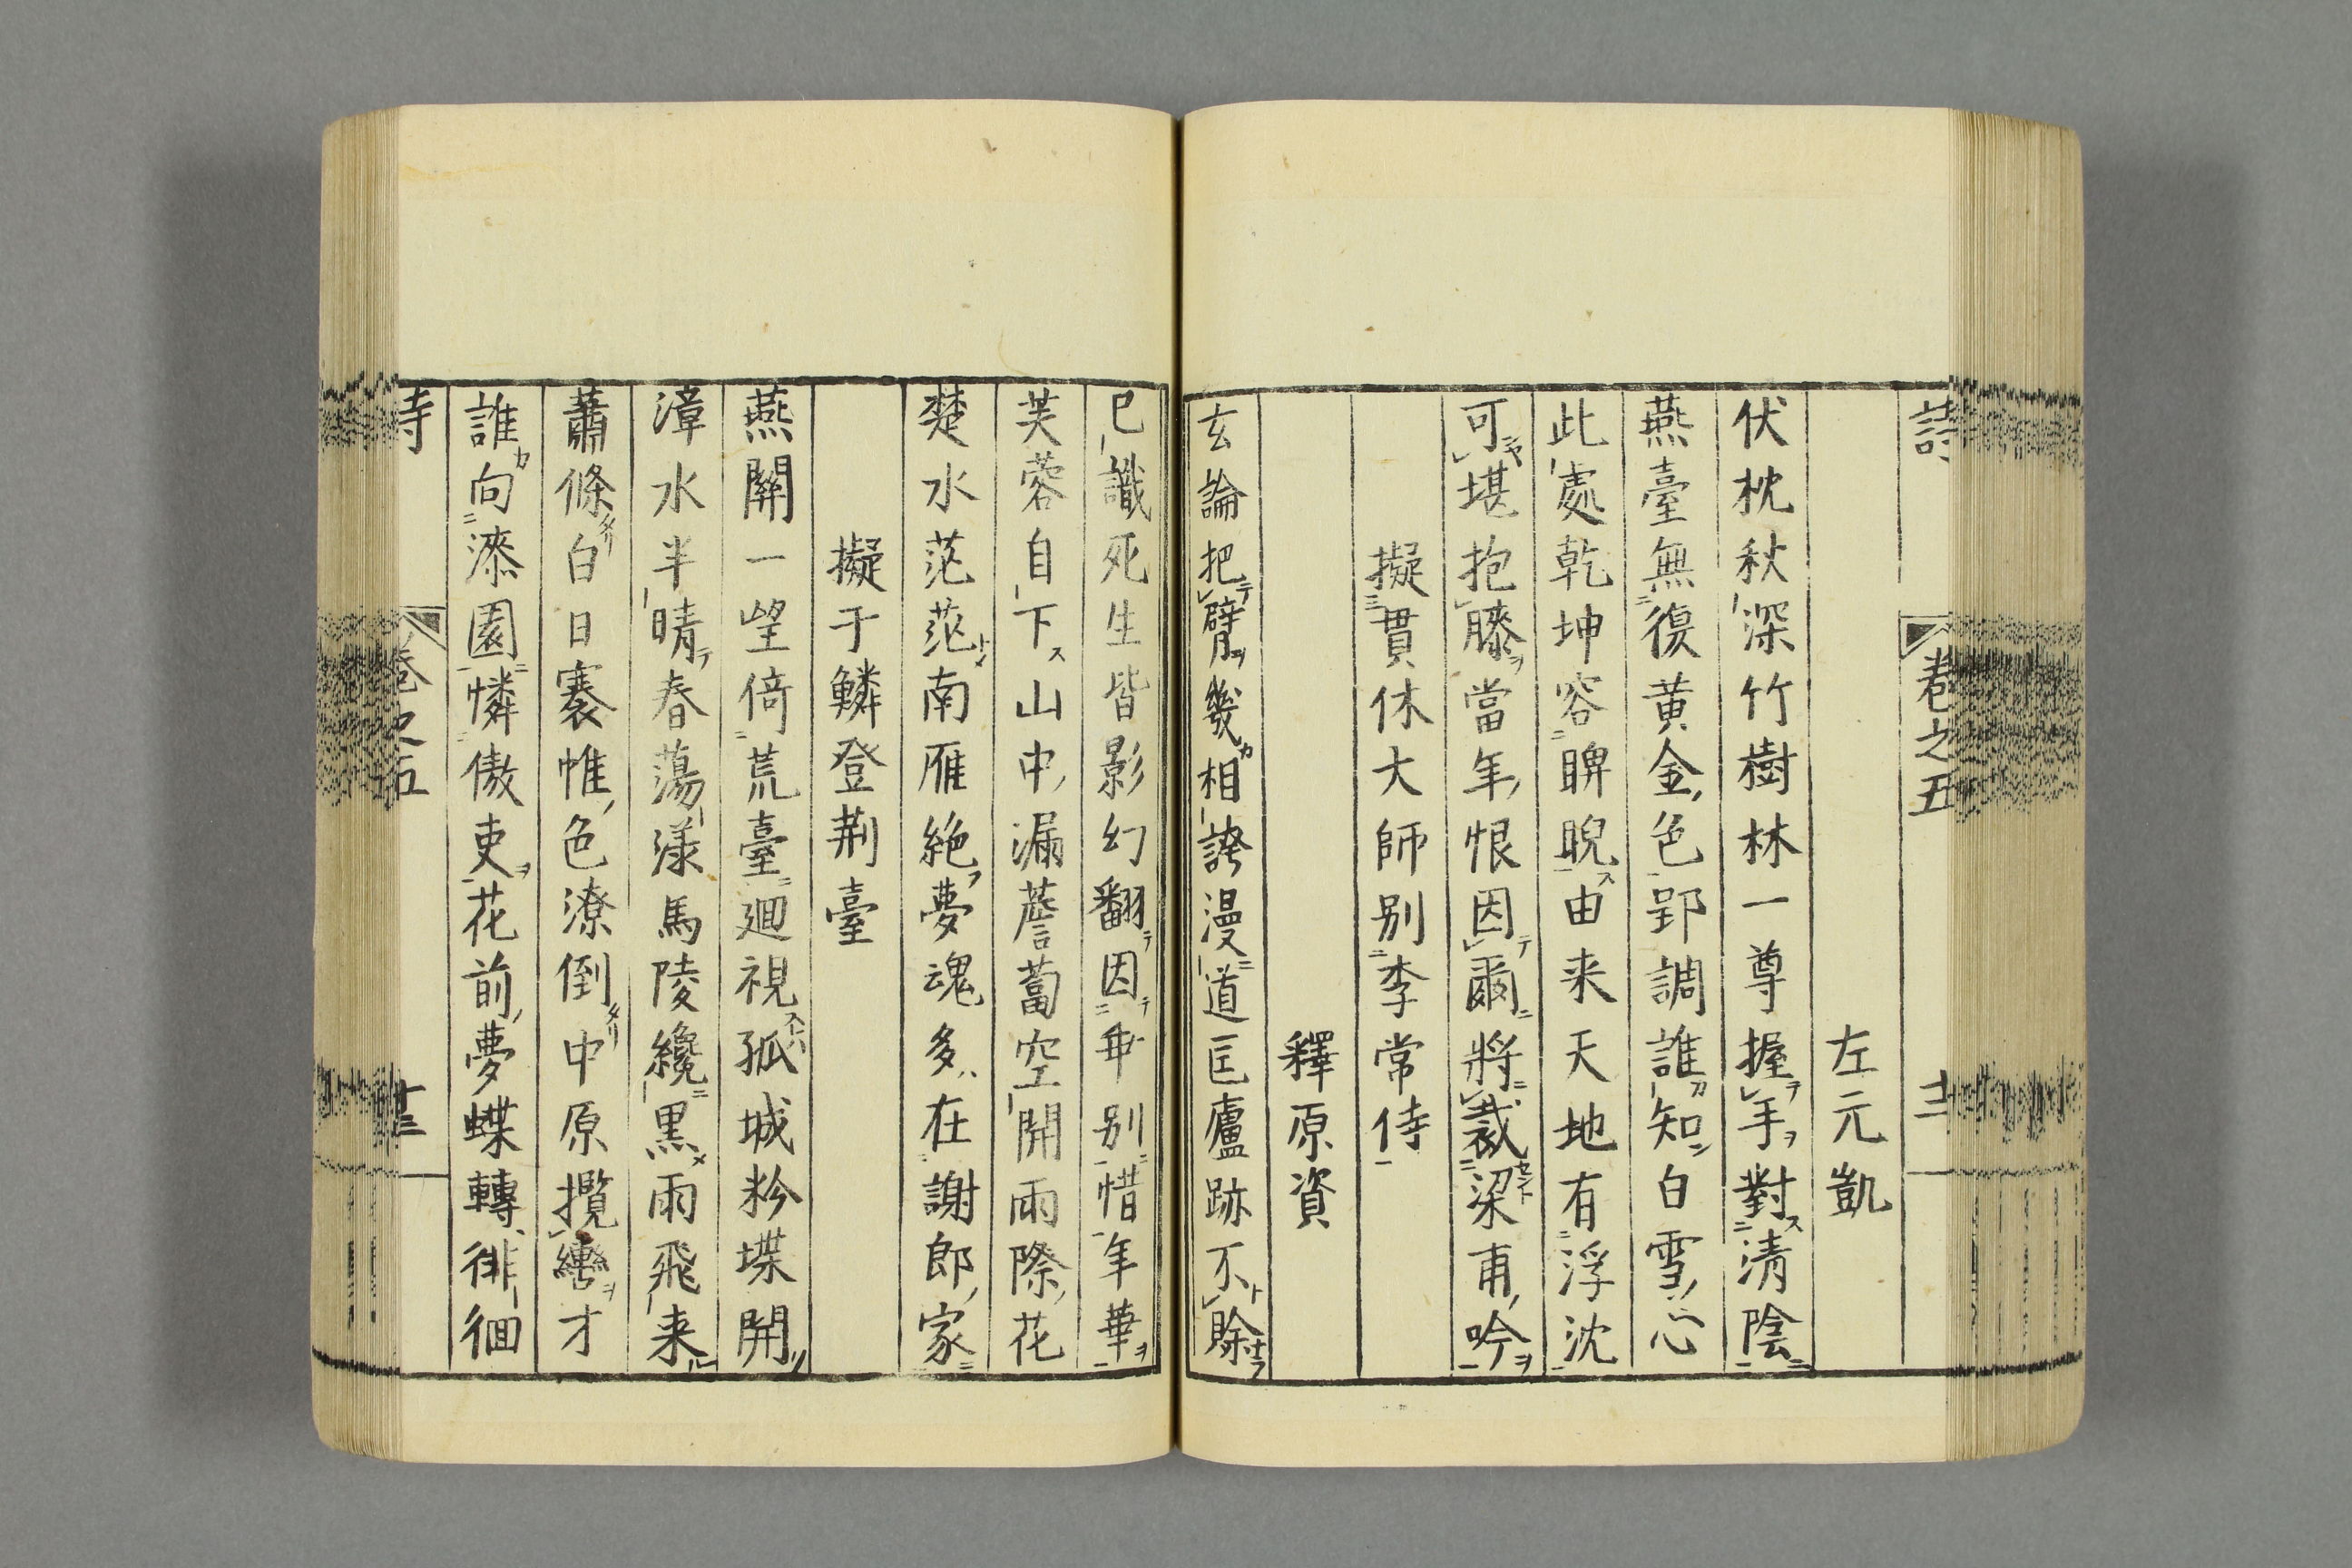 詩 卷之五 十二
左元凱
伏枕秋深竹樹林一尊握手對清陰
燕臺無復黄金色郢調誰知白雪心
此處乾坤容睥睨由来天地有浮沈
可堪抱膝當年恨因爾將裁梁甫吟
擬貫休大師別李常侍
釋原資
玄論把臂幾相誇漫道匡廬跡不賒
已識死生皆影幻翻因年別惜年華
芙蓉自下山中漏薝蔔空開雨際花
楚水茫茫南雁絶夢魂多在謝郎家
擬于鱗登荆臺
燕關一望倚荒臺廻視孤城粉堞開
漳水半晴春蕩漾馬陵纔黒雨飛来
蕭條白日褰帷色潦倒中原攬轡才
誰向漆園憐傲吏花前夢蝶轉徘徊
詩 卷之五 十三